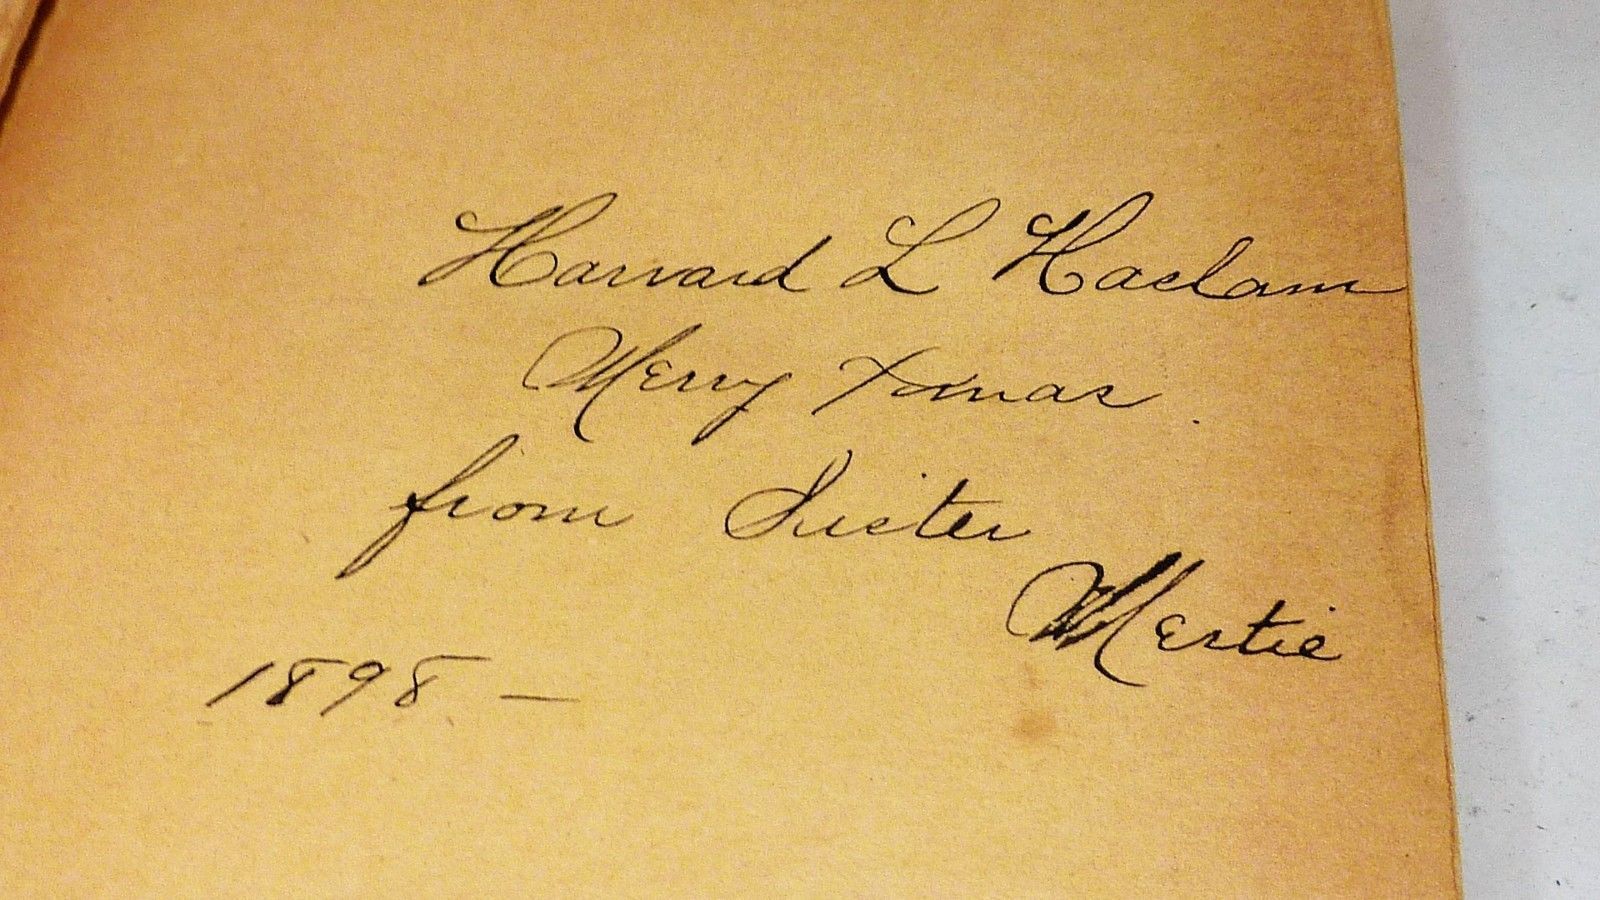 Harvard L Haslam
Merry Xmas.
from Sister
Mertie
1898 —